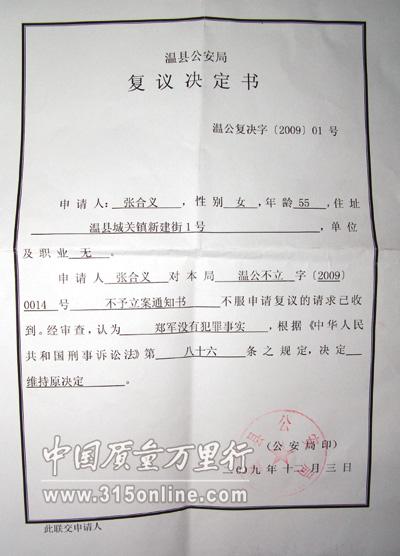 温县公安局
复议决定书
温公复决字〔2009〕01号
申请人：张合义，性别女，年龄55，住址
温县城关镇新建街1号，单位
及职业无。
申请人张合义对本局温公不立字〔2009〕
0014号不予立案通知书不服申请复议的请求已收
到。经审查，认为郑军没有犯罪事实，根据《中华人民
共和国刑事诉讼法》第八十六条之规定，决定
维持原决定。
公安局
（公安局印）
二〇〇九年十二月三日
中国质量万里行
www.315online.com
此联交申请人